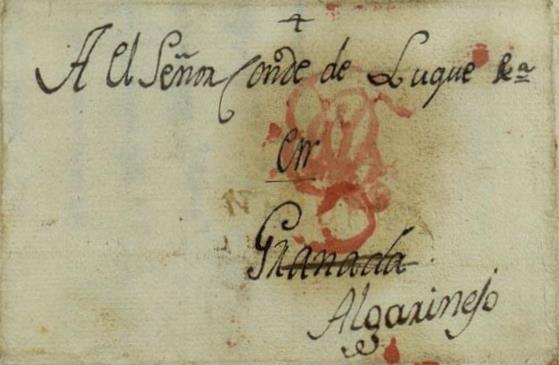 A el Señor Conde de Luque &a
en
Granada
Algarinejo